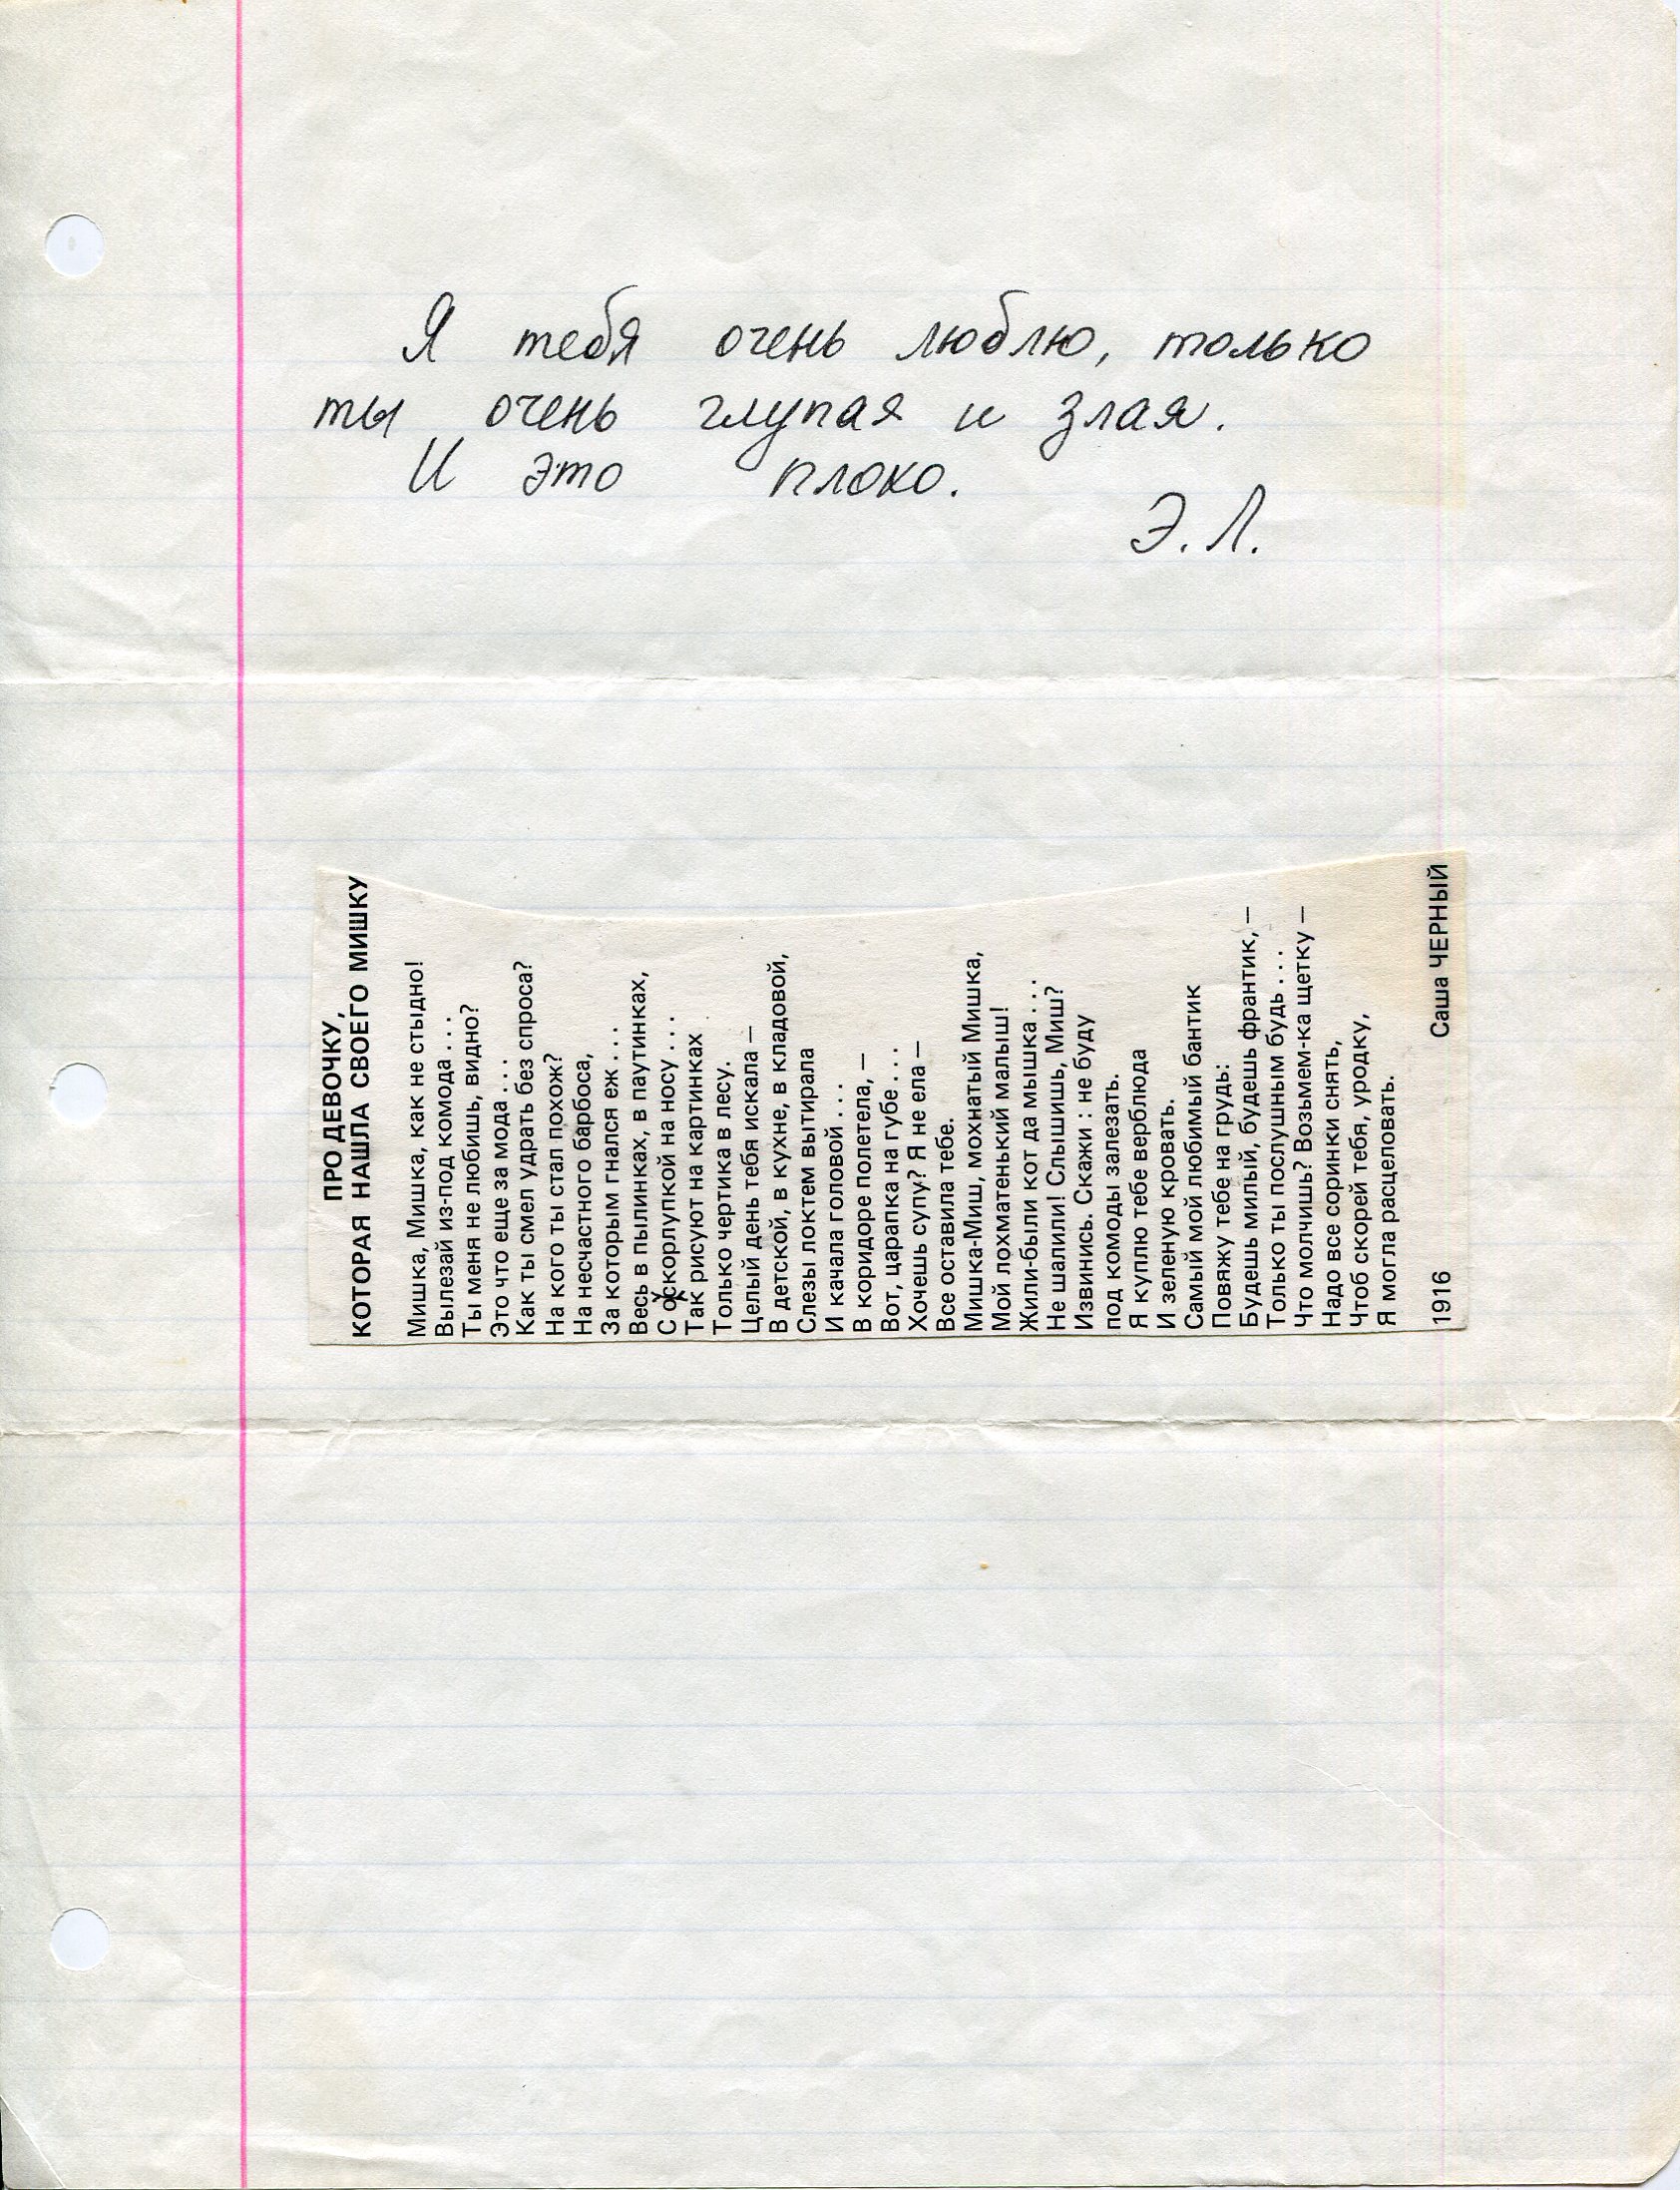 Я тебя очень люблю, только
ты очень глупая и злая.
И это плохо.
Э. Л.
ПРО ДЕВОЧКУ,
КОТОРАЯ НАШЛА СВОЕГО МИШКУ
Мишка, Мишка, как не стыдно!
Вылезай из-под комода ....
Ты меня не любишь, видно?
Это что еще за мода ....
Как ты смел удрать без спроса?
На кого ты стал похож?
На несчастного барбоса,
За которым гнался еж ....
Весь в пылинках, в паутинках,
С оскорлупкой на носу ....
Так рисуют на картинках
Только чертика в лесу.
Целый день тебя искала —
В детской, в кухне, в кладовой,
Слезы локтем вытирала
И качала головой ....
В коридоре полетела, —
Вот, царапка на губе ....
Хочешь супу? Я не ела —
Все оставила тебе.
Мишка-Миш, мохнатый Мишка,
Мой лохматенький малыш!
Жили-были кот да мышка ...
Не шалили! Слышишь, Миш?
Извинись. Скажи : не буду
под комоды залезать.
Я куплю тебе верблюда
И зеленую кровать.
Самый мой любимый бантик
Повяжу тебе на грудь:
Будешь милый, будешь франтик, —
Только ты послушным будь ....
Что молчишь? Возьмем-ка щетку —
Надо все соринки снять,
Чтоб скорей тебя, уродку,
Я могла расцеловать.
1916 Саша ЧЕРНЫЙ